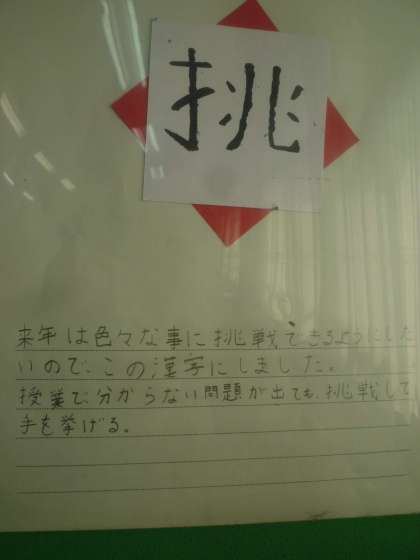 挑
来年は色々な事に挑戦できるようにした
いので、この漢字にしました。
授業で分からない問題が出ても、挑戦して
手を挙げる。